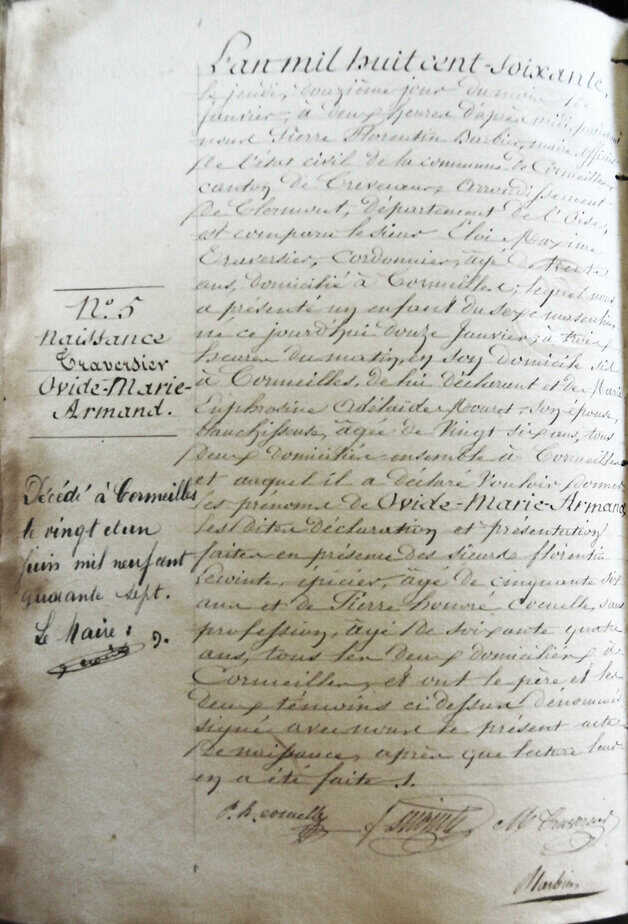 N.° 5
Naissance
Traversier
Ovide-Marie-
Armand.
Décédé à Cormeilles
le vingt et un
juin mil neuf cent
quarante sept.
Le Maire :
L'an mil huit cent-soixante,
le jeudi, douzième jour du mois de
janvier, à deux heures d'après midi, pardevant
nous Pierre Florentin Barbier, maire, officier
de l'état civil de la commune de Cormeilles,
canton de Crevecœur, arrondissement
de Clermont, département de l'Oise,
est comparu le sieur Eloi Maxime
Traversier, Cordonnier, âgé de trente
ans, domicilié à Cormeilles, lequel nous
a présenté un enfant du sexe masculin,
né ce jourd'hui douze Janvier, à
heures du matin, en son domicile sis
à Cormeilles, de lui déclarant et de Marie
Euphrosine Adélaïde Mouret, son épouse,
blanchisseuse, âgée de vingt six ans, tous
deux domiciliés ensemble à Cormeilles
et auquel il a déclaré vouloir donner
les prénoms de Ovide-Marie-Armand,
les dites déclaration et présentation
faites en présence des sieurs florentin
Lewinte, épicier, âgé de cinquante
ans et de Pierre honoré Cornelle, sans
profession, âgé de soixante quatre
ans, tous les deux domiciliés à
Cormeilles, et ont le père et les
deux témoins ci dessus dénommés
signé avec nous le présent acte
de naissance, après que lecture leur
en a été faite ./.